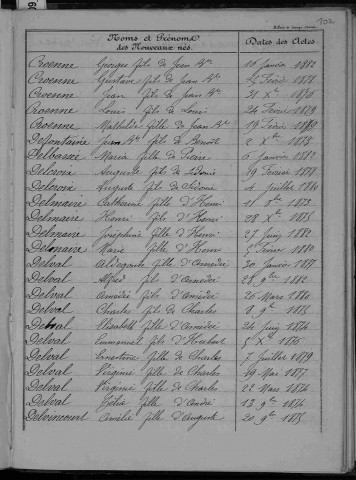 102
Noms et Prénoms
des Nouveaux nés.
Dates des Actes
Croenne Georges fils de Jean Bte 10 Janvier 1882
Croenne Gustave fils de Jean Bte Février 1878
Croenne Jean fils de Jean Bte 21 Xbre
Croenne Louis fils de Louis 24 Février 1879
Croenne Mathilde fille de Jean Bte 19 Février
Défontaine fils de Benoît 2 Xbre 1873
Delbassée Maria fille de Pierre 6 Janvier
Delcroix Auguste fils de Sidonie 19 Février 1878
Delcroix Auguste fils de Sidonie 4 Juillet 1880
Delmaire Catherine fille d'Henri 11 1873
Delmaire Henri fils d'Henri 28 Xbre 1875
Delmaire Joséphine fille d'Henri 27 Juin 1882
Delmaire Marie fille d'Henri Février 1880
Delval Aldegonde fille d'Amédée 30 Janvier 1877
Delval Alfred fils d'Amédée 28 9bre 1882
Delval Amédée fils d'Amédée 26 Mars 1880
Delval Charles fils de Charles 8 9bre 1875
Delval Elisabeth fille d'Amédée 24 Juin 1874
Delval Emmanuel fils d'Hubert 5 Xbre 1876
Delval Ernestine fille de Charles 7 Juillet 1879
Delval Virginie fille de Charles 19 Mai 1877
Delval Virginie fille de Charles 22 Mars 1874
Delval fille d'André 13 9bre 1874
Delvincourt Amélie fille d'Auguste 20 9bre 1875